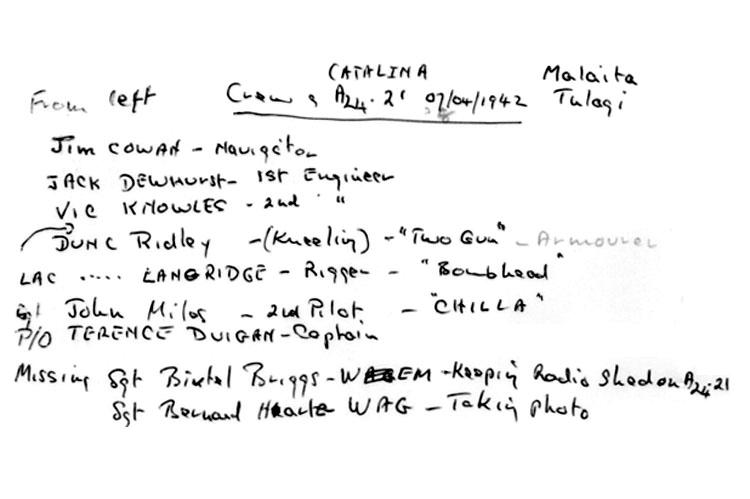 CATALINA Malaita
From left Crew of A24.21 07/04/1942 Tulagi
Jim COWAN - Navigator
JACK DEWHURST - 1st Engineer
VIC KNOWLES - 2nd " "
DUNC Ridley - (Kneeling) - "Two Gun" - Armourer
LAC ..... LANGRIDGE - Rigger - "Bombhead"
Sgt John Miles - 2nd Pilot - "CHILLA"
P/O TERENCE DUIGAN - Captain
Missing Sgt Briggs - - Keeping Radio A24-21
Sgt Bernard WAG - Taking photo